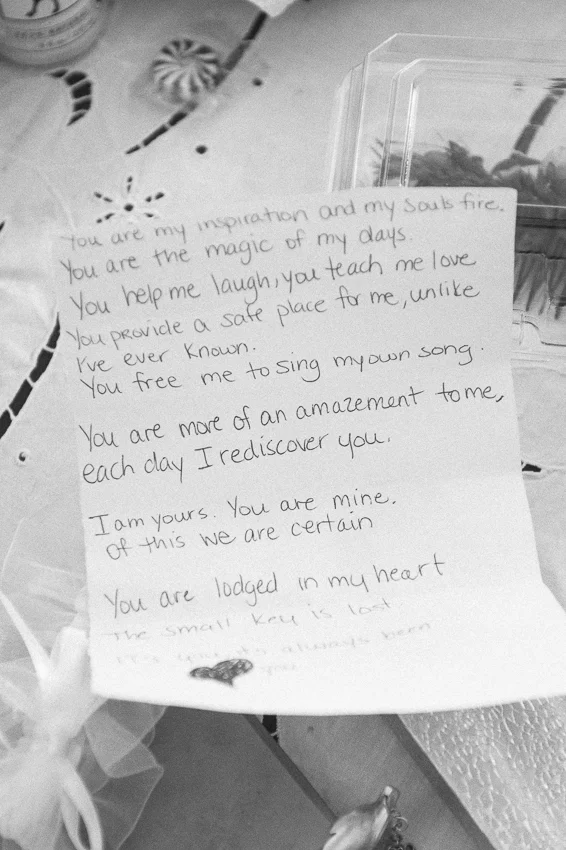 You are my inspiration and my souls fire.
You are the magic of my days.
You help me laugh, you teach me love
You provide a safe place for me, unlike
I've ever known.
You free me to sing my own song.
You are more of an amazement to me,
each day I rediscover you.
I am yours. You are mine.
Of this we are certain
You are lodged in my heart
The small key is lost
It's you, it's always been
you